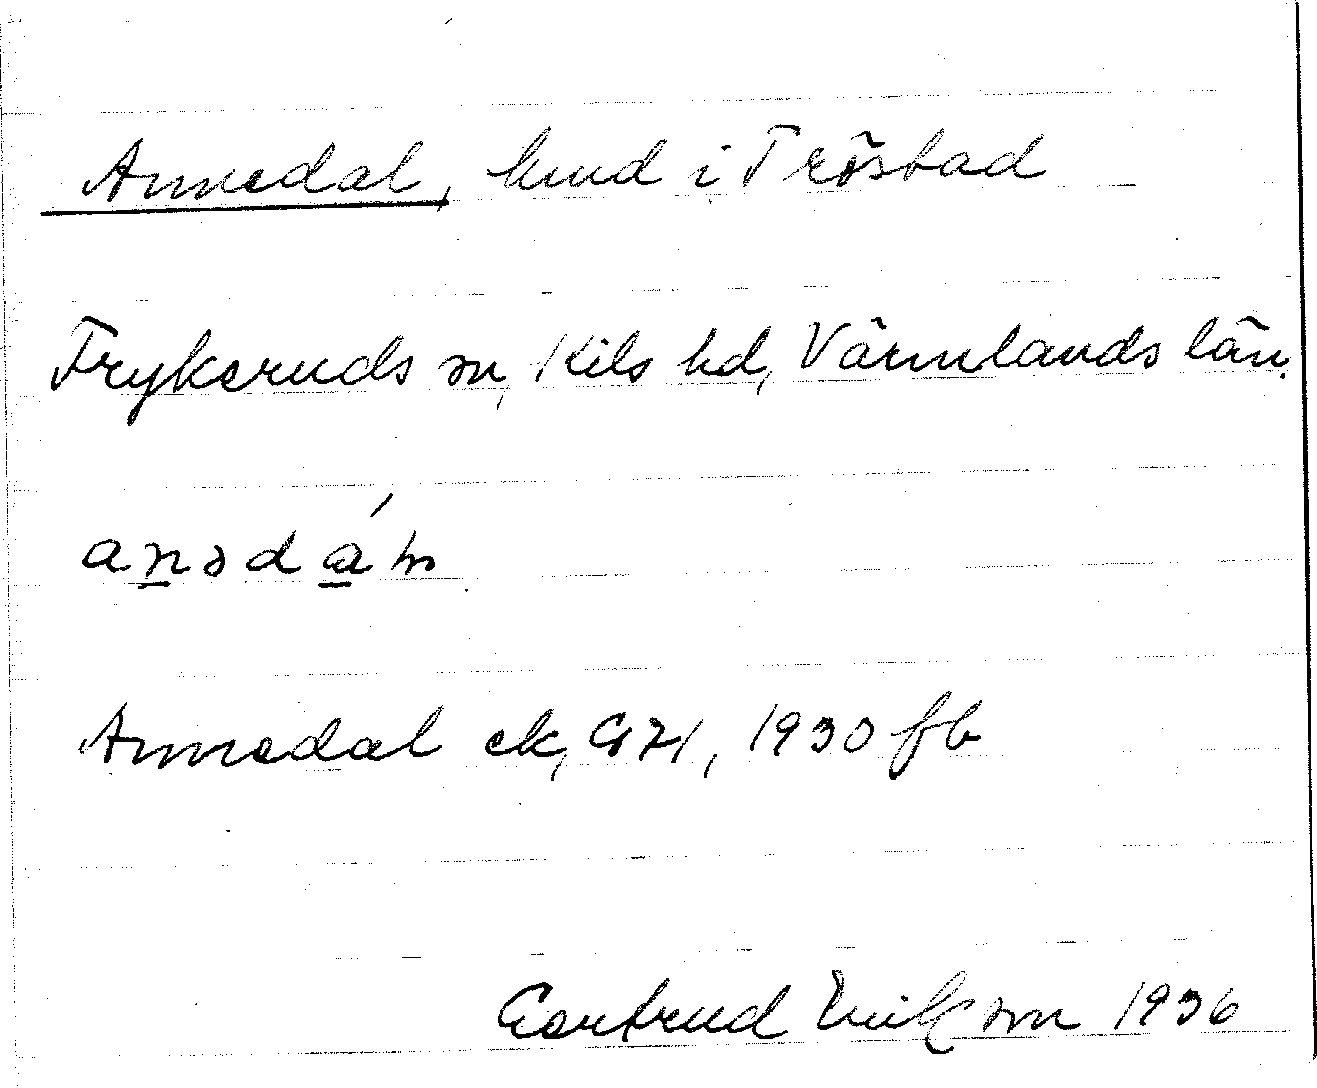 Annedal, hmd i Tröstad
Frykeruds sn, Kils hd, Värmlands län.
anədá
Annedal ek, G 71, 1930 fb
Gertrud Erikson 1936